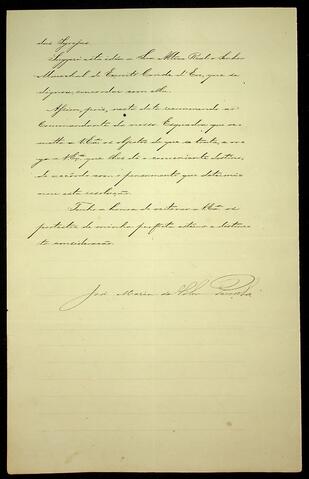 das Igrejas.
Suggeri esta idéa a Sua Alteza Real o Senhor
Marechal de Exercito Conde d'Eu, que se
dignou concordar com ella.
Assim, pois, nesta data recommendo ao
Commandante da nossa Esquadra, que re-
metta a VExª os objectos de que se trata, e ro-
go a VExª, que lhes dê o conveniente destino,
de accôrdo com o pensamento que determi-
nou esta resolução.
Tenho a honra de reiterar a VExª os
protestos de minha perfeita estima e distinc-
ta consideração.
José Maria da Silva Paranhos